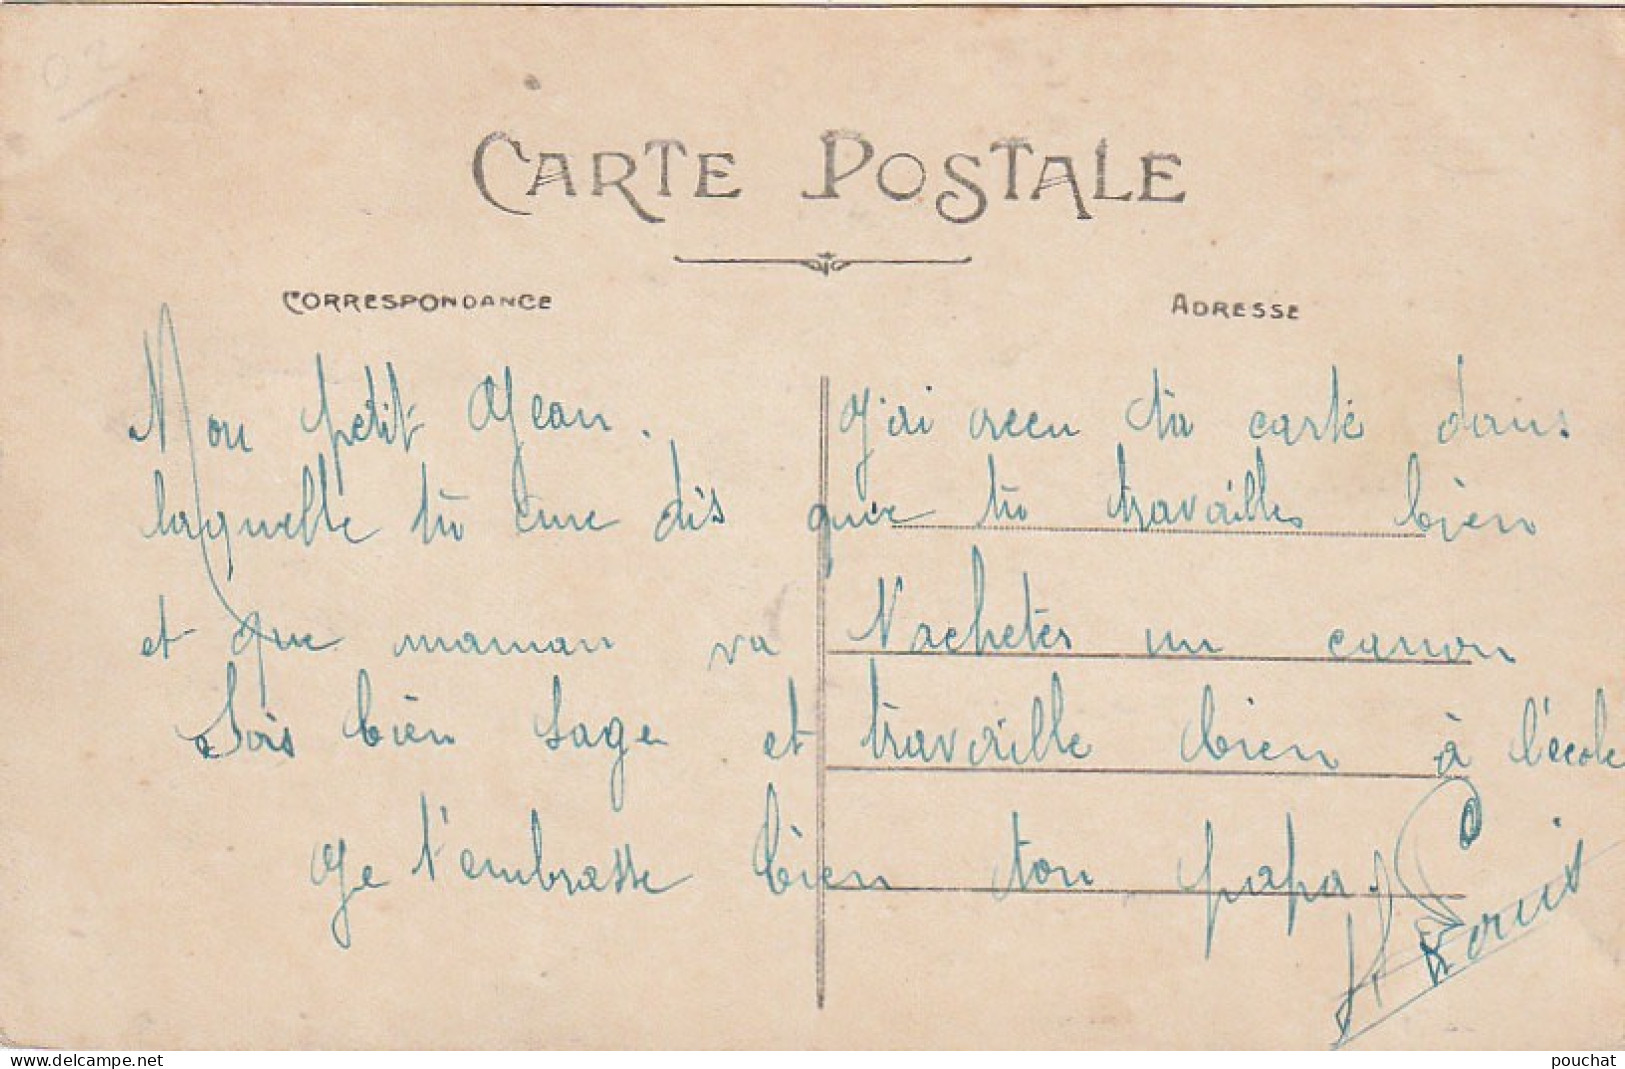 CARTE POSTALE
CORRESPONDANCE
ADRESSE
Mon petit Jean. J'ai recu ta carte dans
laquelle tu me dis que tu travailles bien
et que maman va t'achetes un canon
Sois bien sage et travaille bien à l'école
Je t'embrasse bien ton papa.
Louis
www.delcampe.net
pouchat